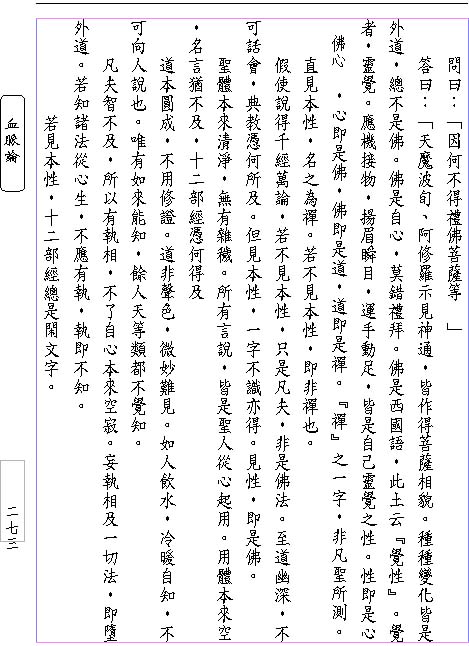 問曰：「因何不得禮佛菩薩等　」
答曰：「天魔波旬、阿修羅示見神通，皆作得菩薩相貌。種種變化皆是
外道，總不是佛。佛是自心，莫錯禮拜。佛是西國語，此土云『覺性』。覺
者，靈覺。應機接物，揚眉瞬目，運手動足，皆是自己靈覺之性。性即是心
佛心　，心即是佛，佛即是道，道即是禪。『禪』之一字，非凡聖所測。
直見本性，名之為禪。若不見本性，即非禪也。
假使說得千經萬論，若不見本性，只是凡夫，非是佛法。至道幽深，不
可話會，典教憑何所及。但見本性，一字不識亦得。見性，即是佛。
聖體本來清淨，無有雜穢。所有言說，皆是聖人從心起用。用體本來空
，名言猶不及，十二部經憑何得及
道本圓成，不用修證。道非聲色，微妙難見。如人飲水，冷暖自知，不
可向人說也。唯有如來能知，餘人天等類都不覺知。
凡夫智不及，所以有執相，不了自心本來空寂。妄執相及一切法，即墮
外道。若知諸法從心生，不應有執，執即不知。
若見本性，十二部經總是閑文字。
血脈論
二七三